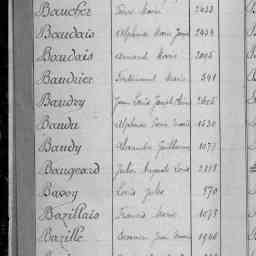 Baucher Pierre Marie 2433
Baudais Alphonse Marie Joseph 2434
Baudais Armand Marie 2095
Baudrier Ferdinand Marie 541
Baudry Jean Louis Joseph 2625
Baudu Alphonse Marie 1530
Baudy Alexandre Guillaume 1077
Baugeard Jules Auguste Louis
Bavoy Louis Jules 570
Bazillais Francis Marie 1078
Bazille Jean 1946